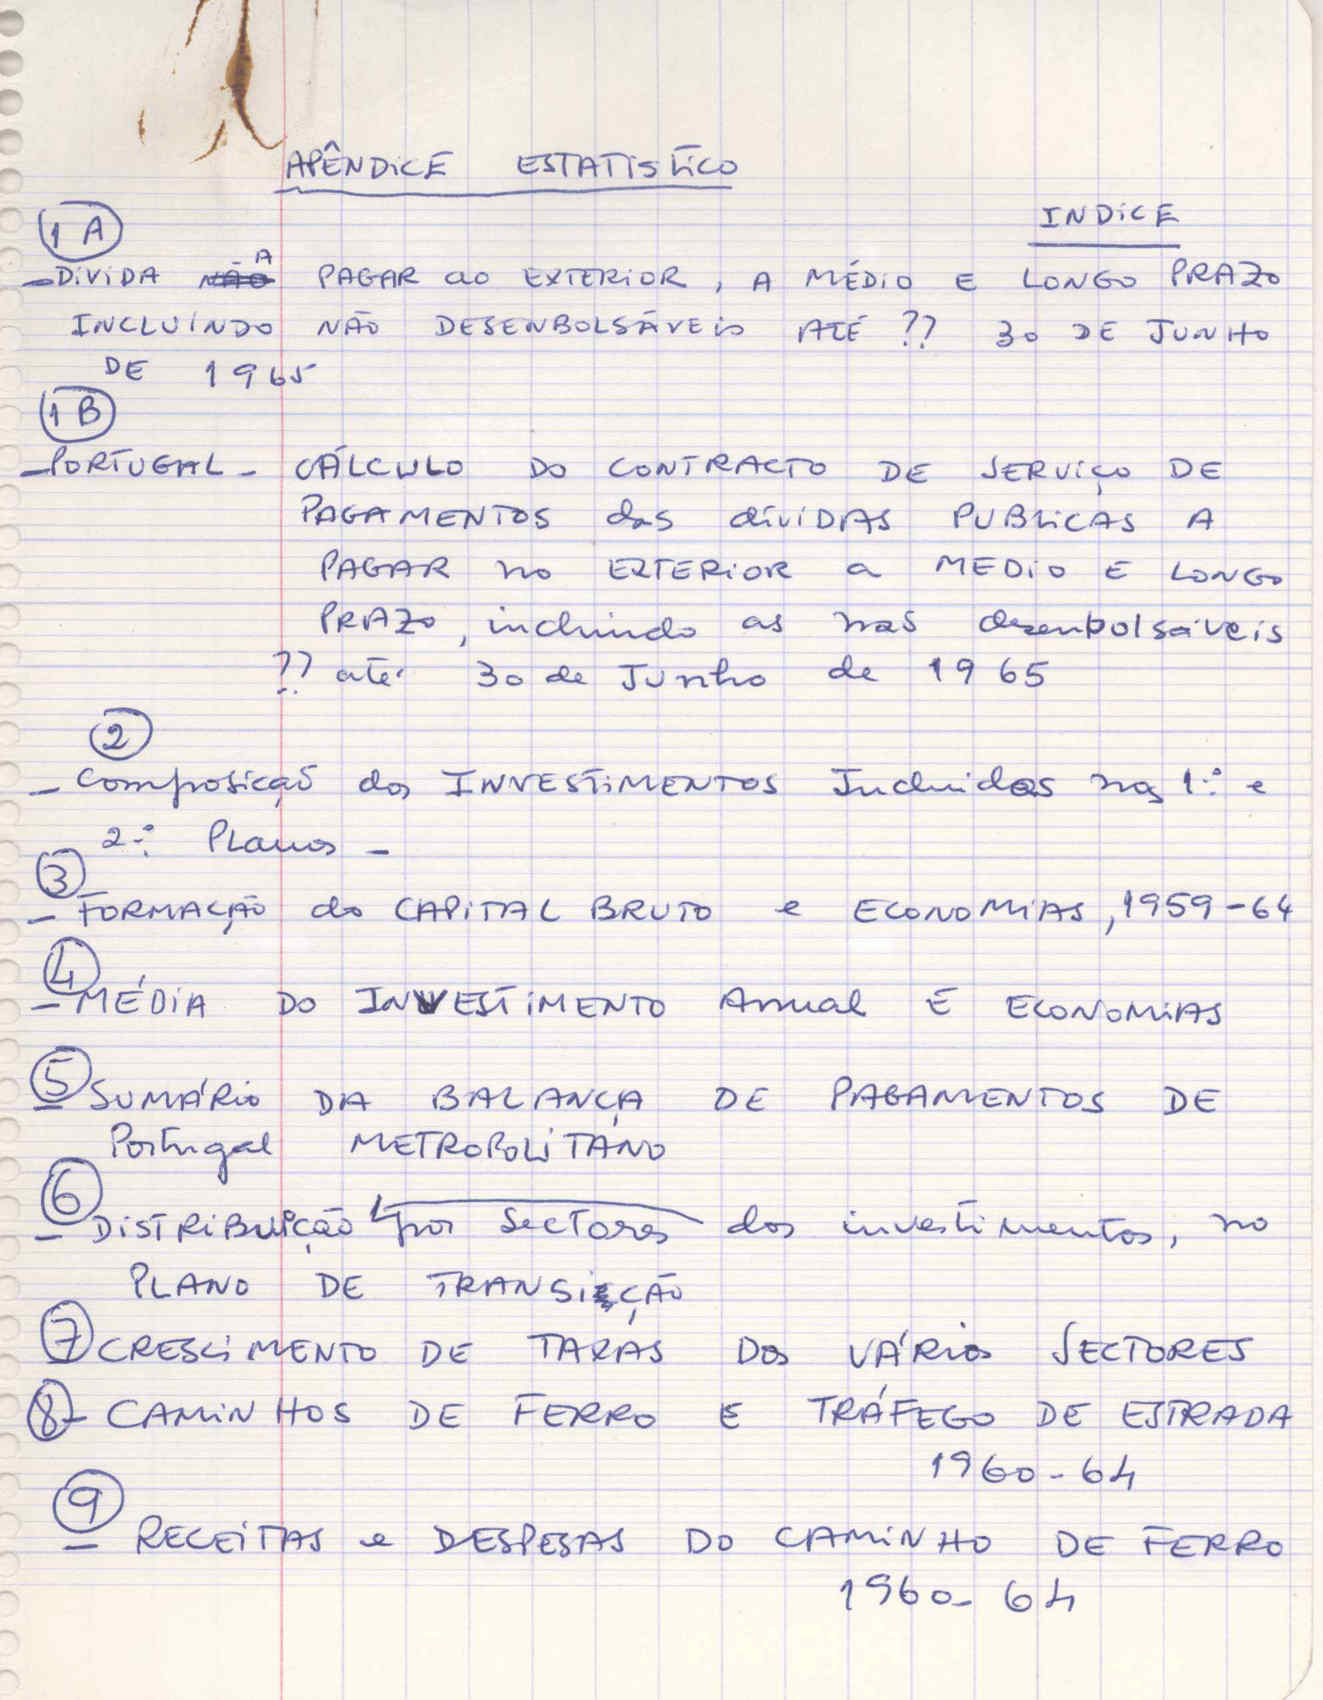 APÊNDICE ESTATISTICO
INDICE
1 A
- DIVIDA NÃO A PAGAR ao EXTERIOR, A MÉDIO E LONGO PRAZO
INCLUÍNDO NÃO DESENBOLSÁVEIS ATÉ ?? 30 DE JUNHO
DE 1965
1 B
- PORTUGAL - CÁLCULO DO CONTRACTO DE SERVIÇO DE
PAGAMENTOS das dívIDAS PUBLICAS A
PAGAR no EXTERIOR a MEDIO E LONGO
PRAZO, incluindo as nas desenbolsáveis
?? até 30 de JUNho de 1965
2
- Composição dos INVESTIMENTOS Incluidos nos 1.º e
2.º PLanos -
3
- FORMAÇÃO do CAPITAL BRUTO e ECONOMIAS, 1959-64
4
- MÉDIA DO INVESTIMENTO Anual E ECONOMIAS
5
- SUMÁRIO DA BALANÇA DE PAGAMENTOS DE
Portugal METROPOLITANO
6
- DISTRIBUIÇÃO por SecTores dos investimentos, no
PLANO DE TRANSIÇÃO
7 - CRESCIMENTO DE TAXAS DOS VÁRIOS SECTORES
8 - CAMINHOS DE FERRO E TRÁFEGO DE ESTRADA
1960-64
9
- RECEITAS e DESPESAS DO CAMINHO DE FERRO
1960-64